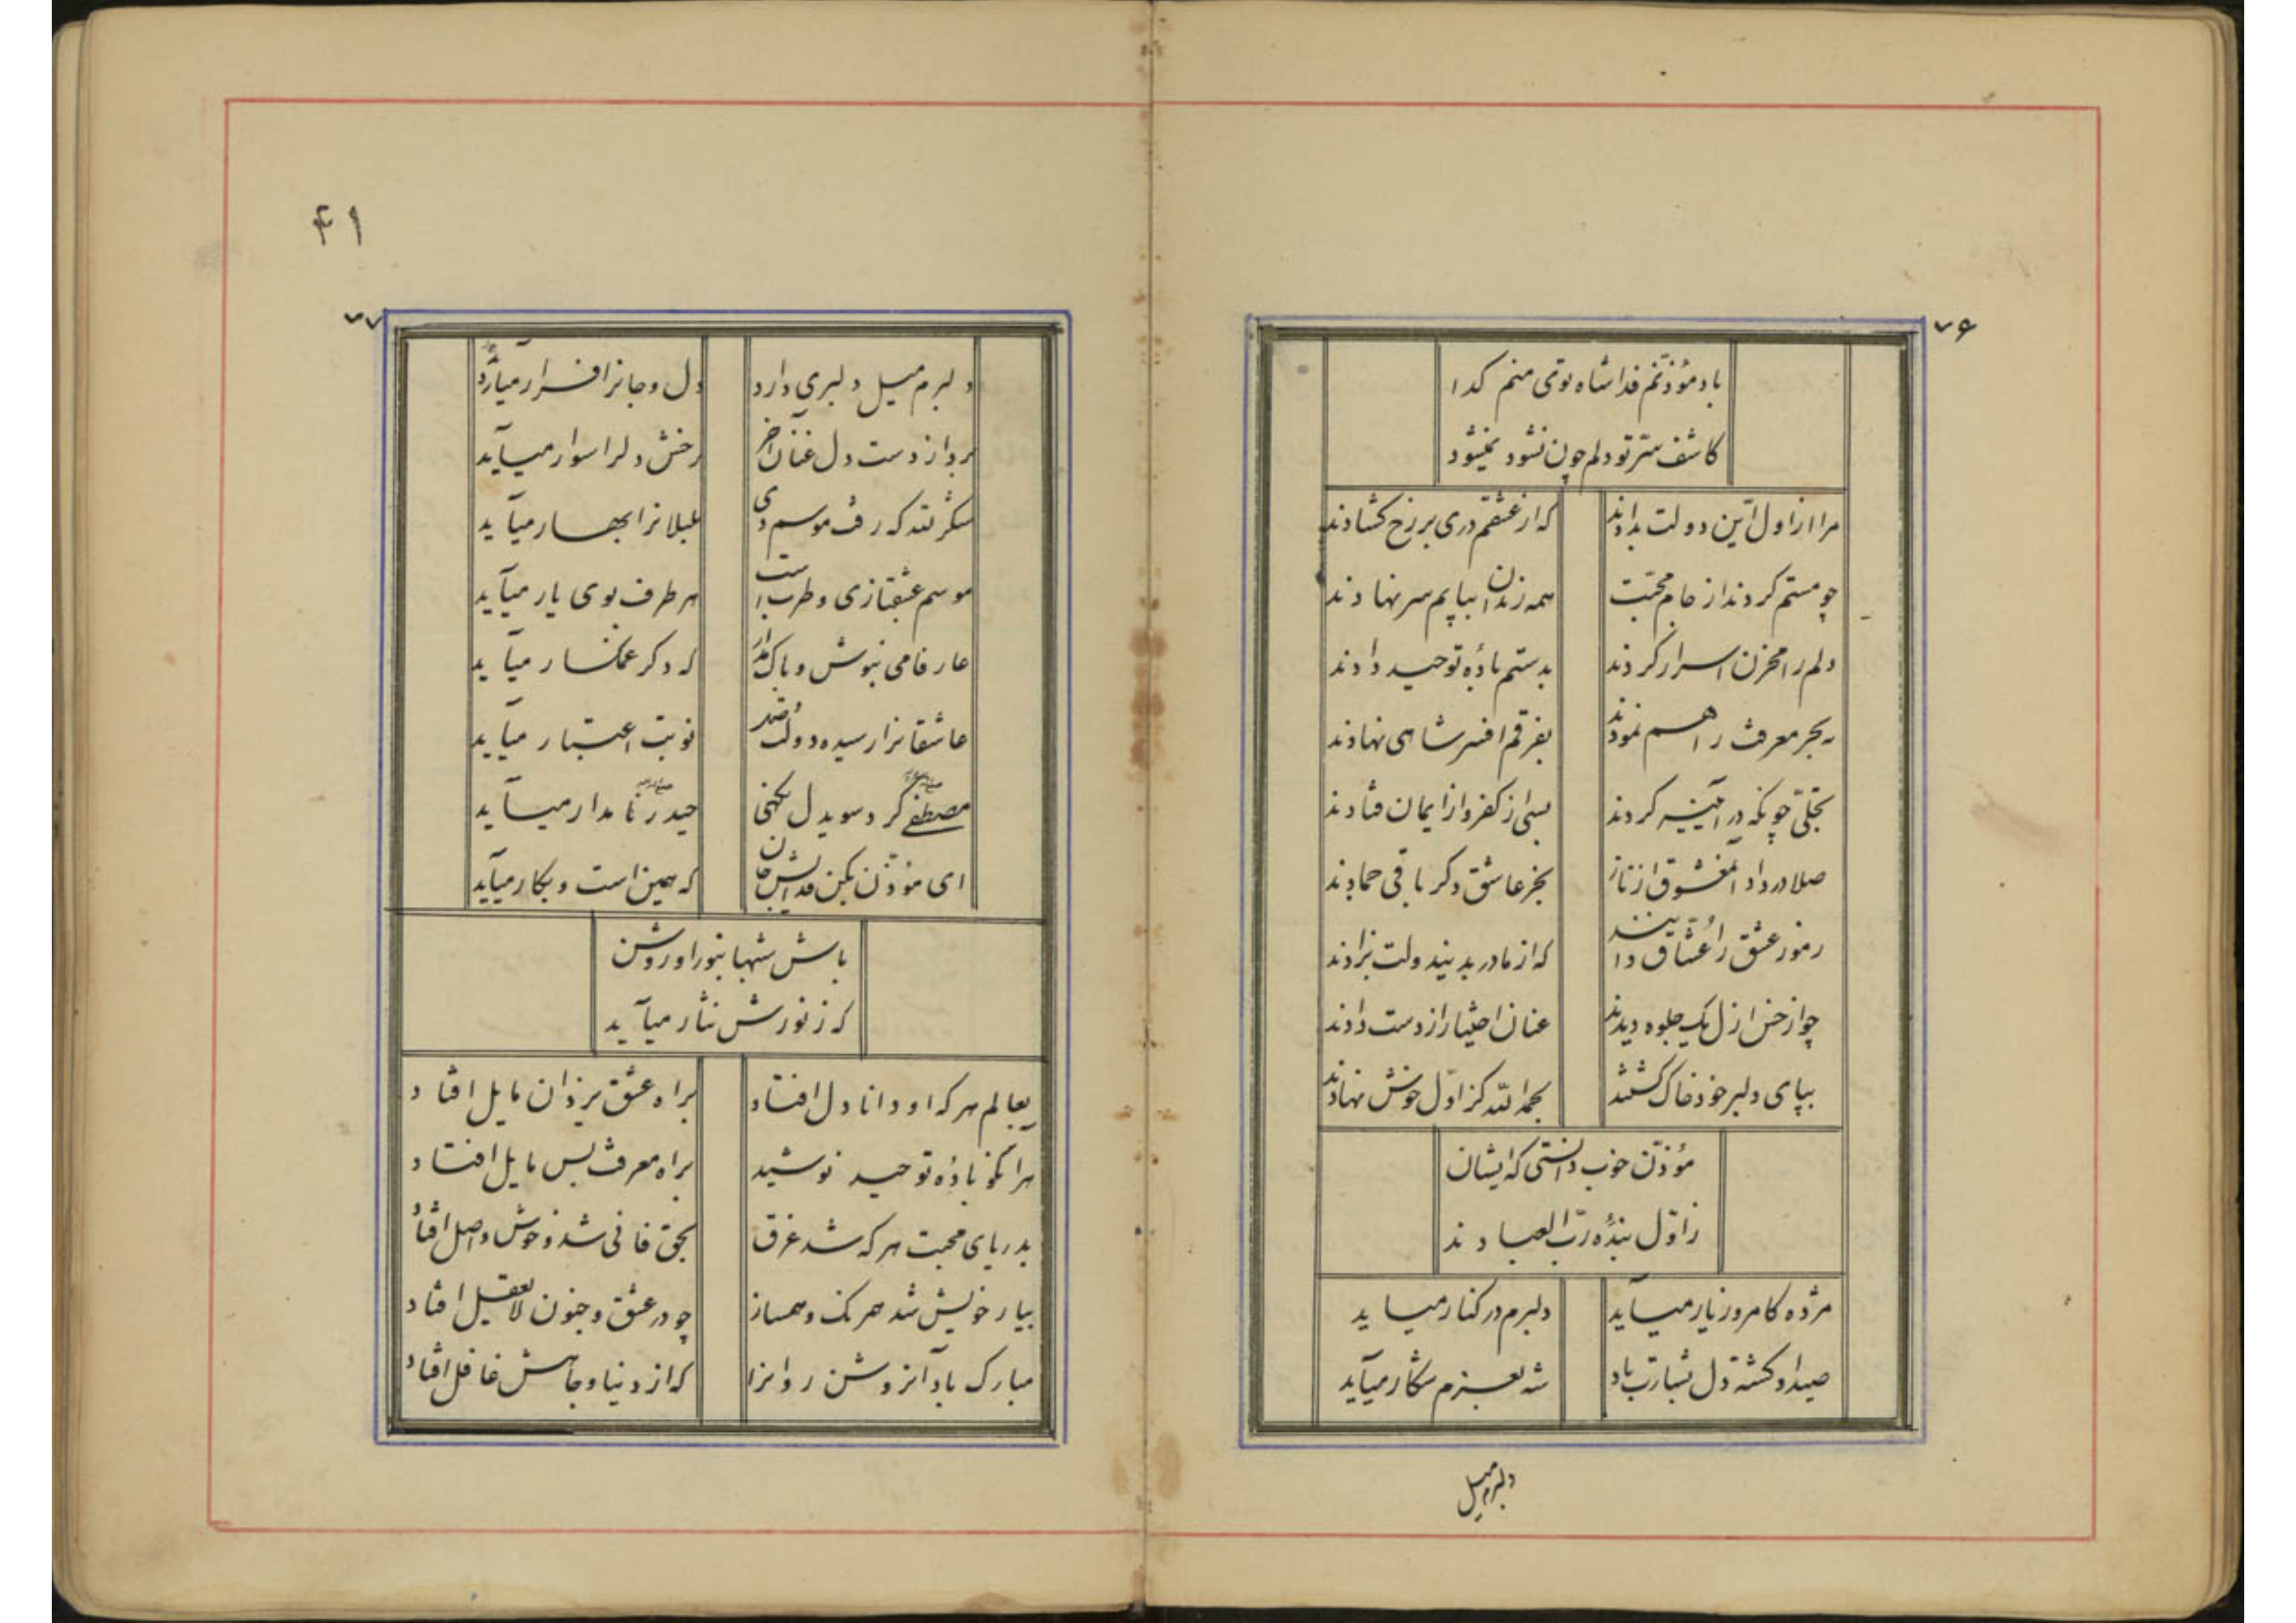 ۷۶
باد مؤذنم فدا شاه توئی منم گدا
کاشف سرّ تو دلم چون نشود نمیشود
مرا از اول این دولت بدادند
که از عشقم دری بر رخ گشادند
چو مستم کردند از جام محبّت
همه رندان بپایم سر نهادند
دلم را مخزن اسرار کردند
بدستم بادهٔ توحید دادند
به بحر معرفت راهم نمودند
بفرقم افسر شاهی نهادند
تجلّی چونکه در آئینه کردند
بسی از کفر و از ایمان فتادند
صلا در داد آنمعشوق از ناز
بجز عاشق دگر باقی جمادند
رموز عشق را عُشّاق دانند
که از مادر بدیندولت بزادند
چو از حسن ازل یک جلوه دیدند
عنان اختیار از دست دادند
بپای دلبر خود خاک گشتند
بحمد الله کز اوّل خوش نهادند
مؤذّن خوب دانستی که ایشان
ز اوّل بندهٔ ربّ العبادند
مژده کامروز یار میآید
دلبرم در کنار میاید
صید او گشتهٔ دل بشارت باد
شه بعزم شکار میآید
دلبرم میل
۴۱
۷۷
دلبرم میل دلبری دارد
دل و جانرا قرار میآید
برد از دست دل عنان آخر
رخش دلرا سوار میآید
شکر لله که رفت موسم دی
بلبلانرا بهار میآید
موسم عشقبازی و طرب است
هر طرف بوی یار میآید
عارفا می بنوش و باک مدار
که دگر غمگسار میآید
عاشقانرا رسیده دولت
نوبت اعتبار میاید
مصطفی گر دل
حیدر نامدار میآید
ای مؤذّن بکن فدایش جان
که همین است و بکار میآید
باش شبها بنور او روشن
که ز نورش نثار میآید
بعالم هر که او دانا دل افتاد
براه عشق یزدان مایل افتاد
هر آنکو بادهٔ توحید نوشید
براه معرفت بس مایل افتاد
بدریای محبت هر که شد غرق
بحق فانی شد و خوش واصل افتاد
بیار خویش شد همرنگ و همساز
چو در عشق و جنون لایعقل افتاد
مبارک باد آنروشن روانرا
که از دنیا و جاهش غافل افتاد